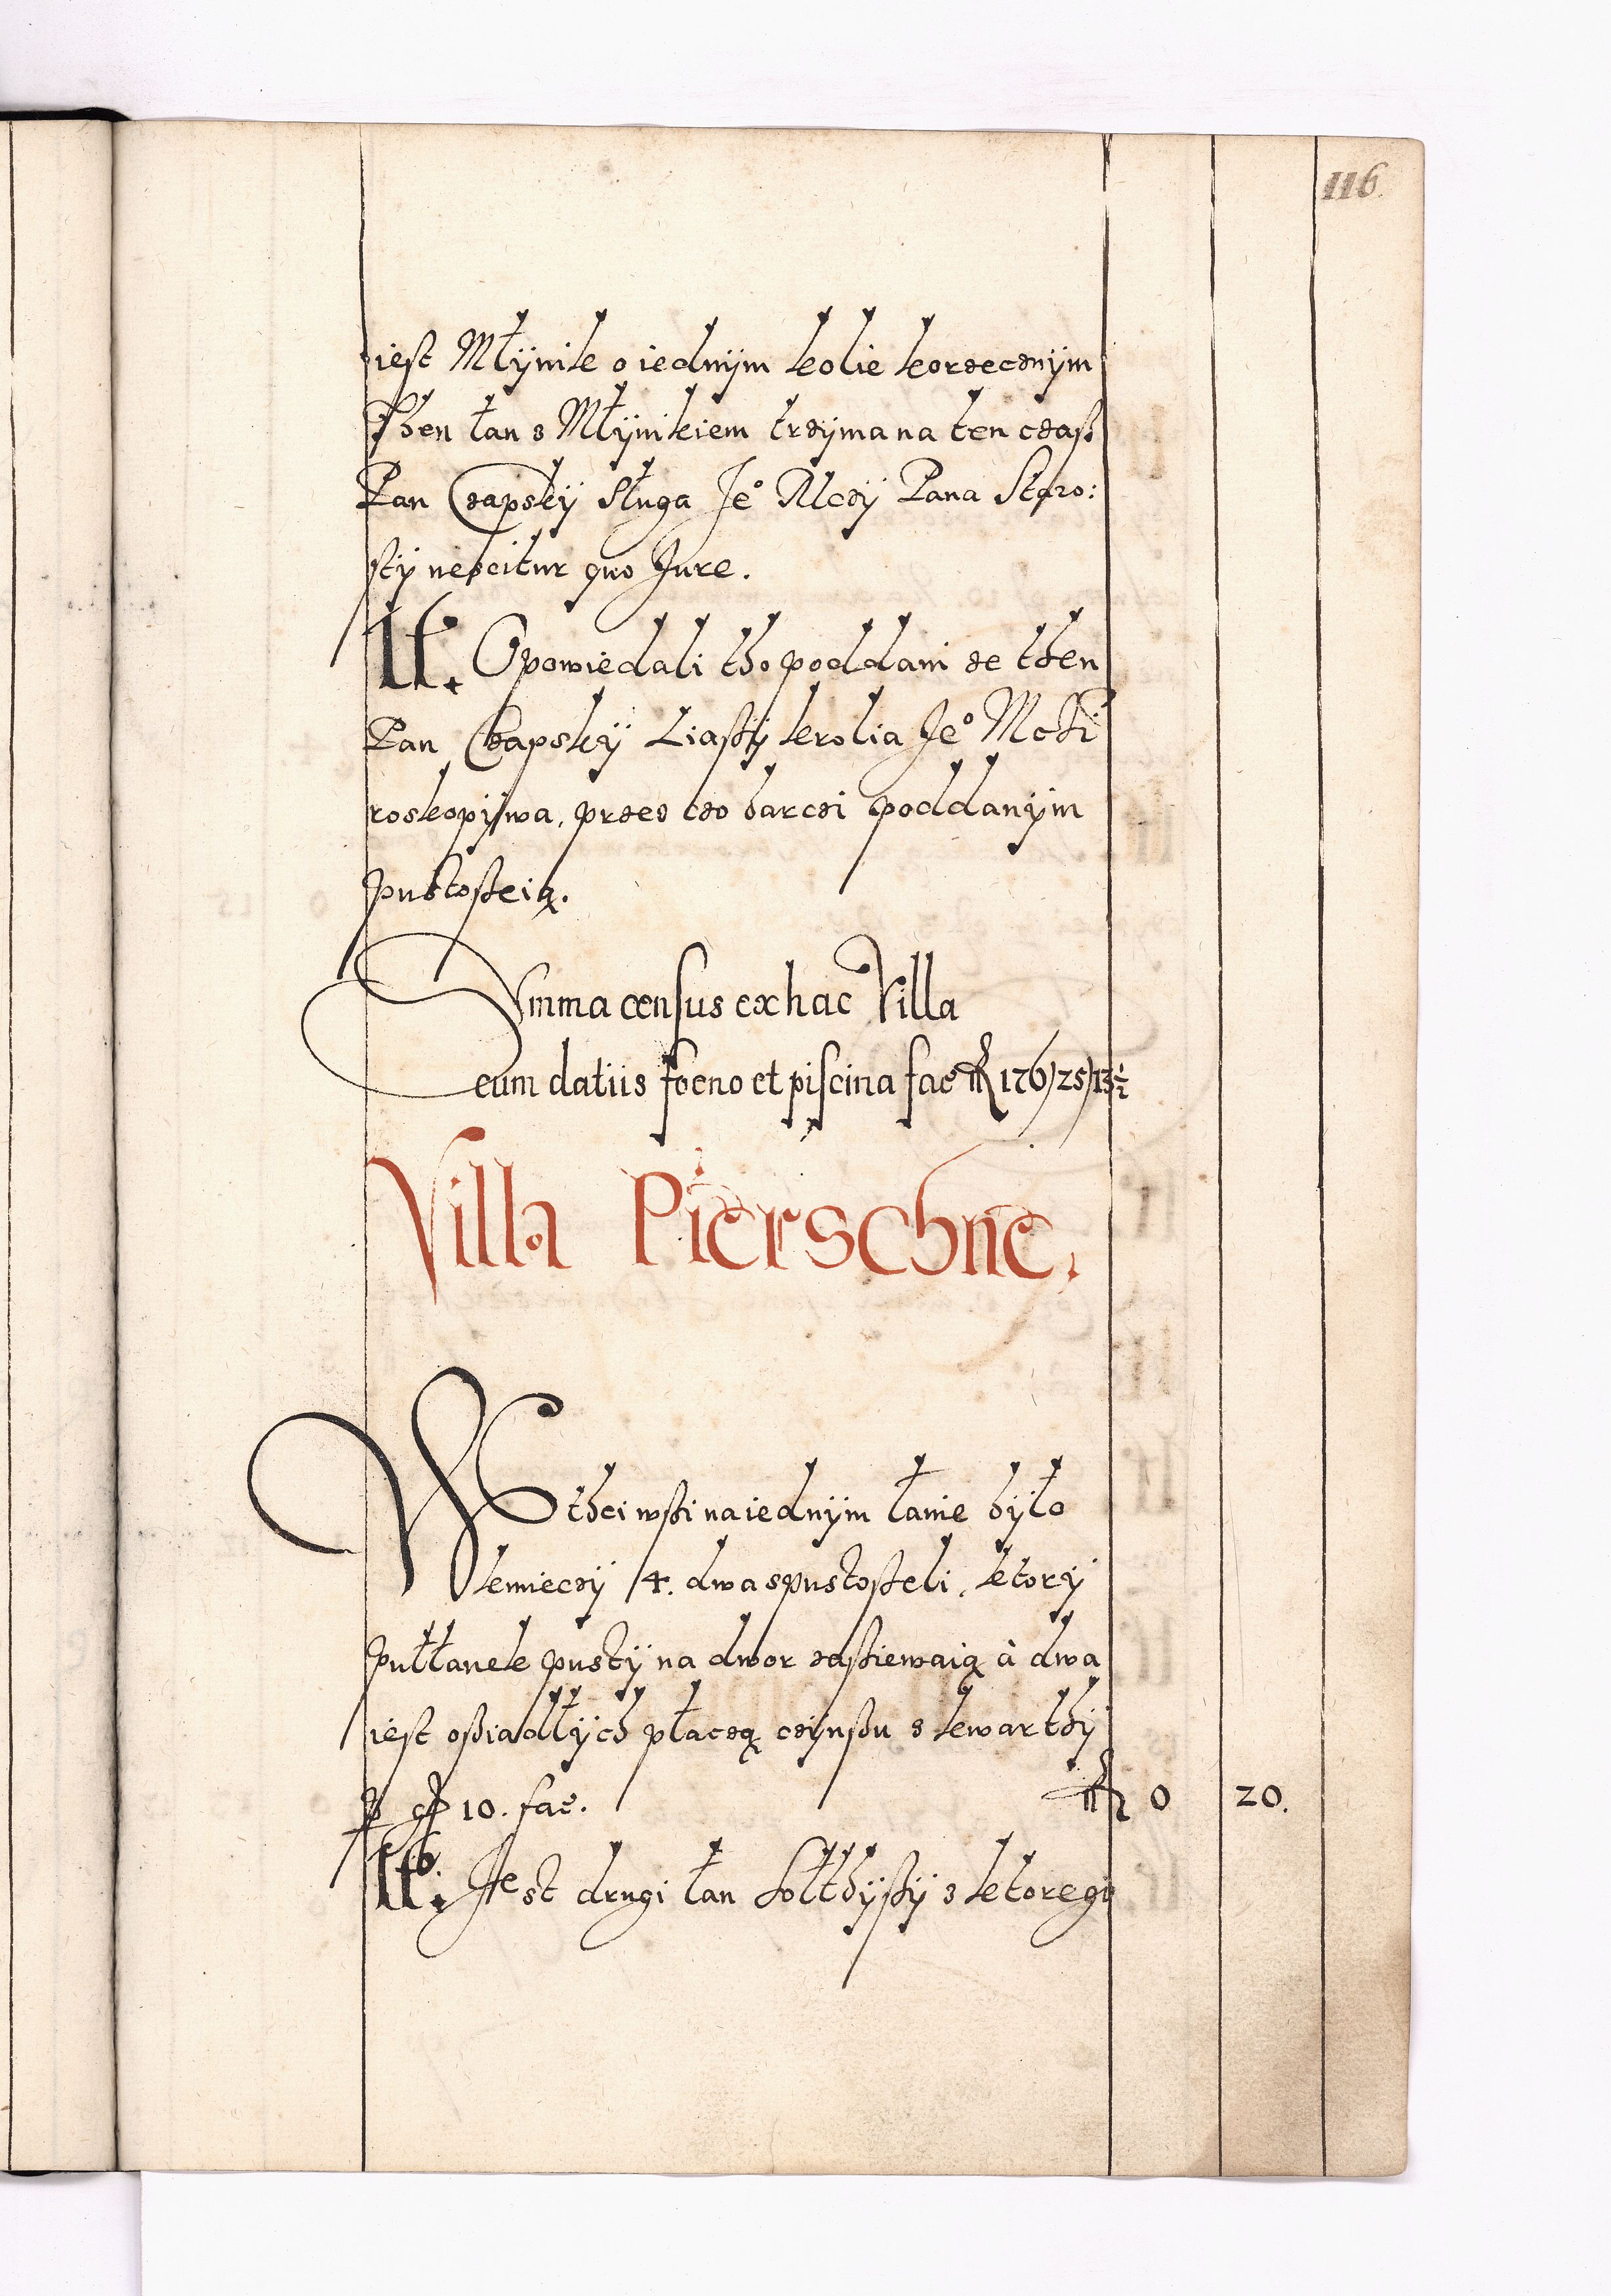 116
iest Młÿnik o iednÿm kolie korzecznÿm
Then łan z Młÿnikiem trzÿma na ten czaß
Pan Czapskÿ Sługa Je° Mczÿ Pana Staro:
stÿ nescitur quo Jure.
It. Opowiedali tho poddani ze then
Pan Czapskÿ Liassÿ krolia Je° Mcżi
roskopÿwa, przez czo barczi poddanÿm
pustoßeią.
Summa census ex hac Villa
cum datiis foeno et piscina fac fl 176/25/13½
Villa Pierschne.
W thei wßi na iednÿm łanie bÿło
kmieczÿ 4. dwa spustoßeli, ktorÿ
pułłanek pustÿ na dwor zaßiewaią à dwa
iest oßiadłÿch płaczą czÿnßu z kwarthÿ
p gr 10. fac. fl 0 20.
It. Jest drugi łan Sołthÿßÿ z ktorego